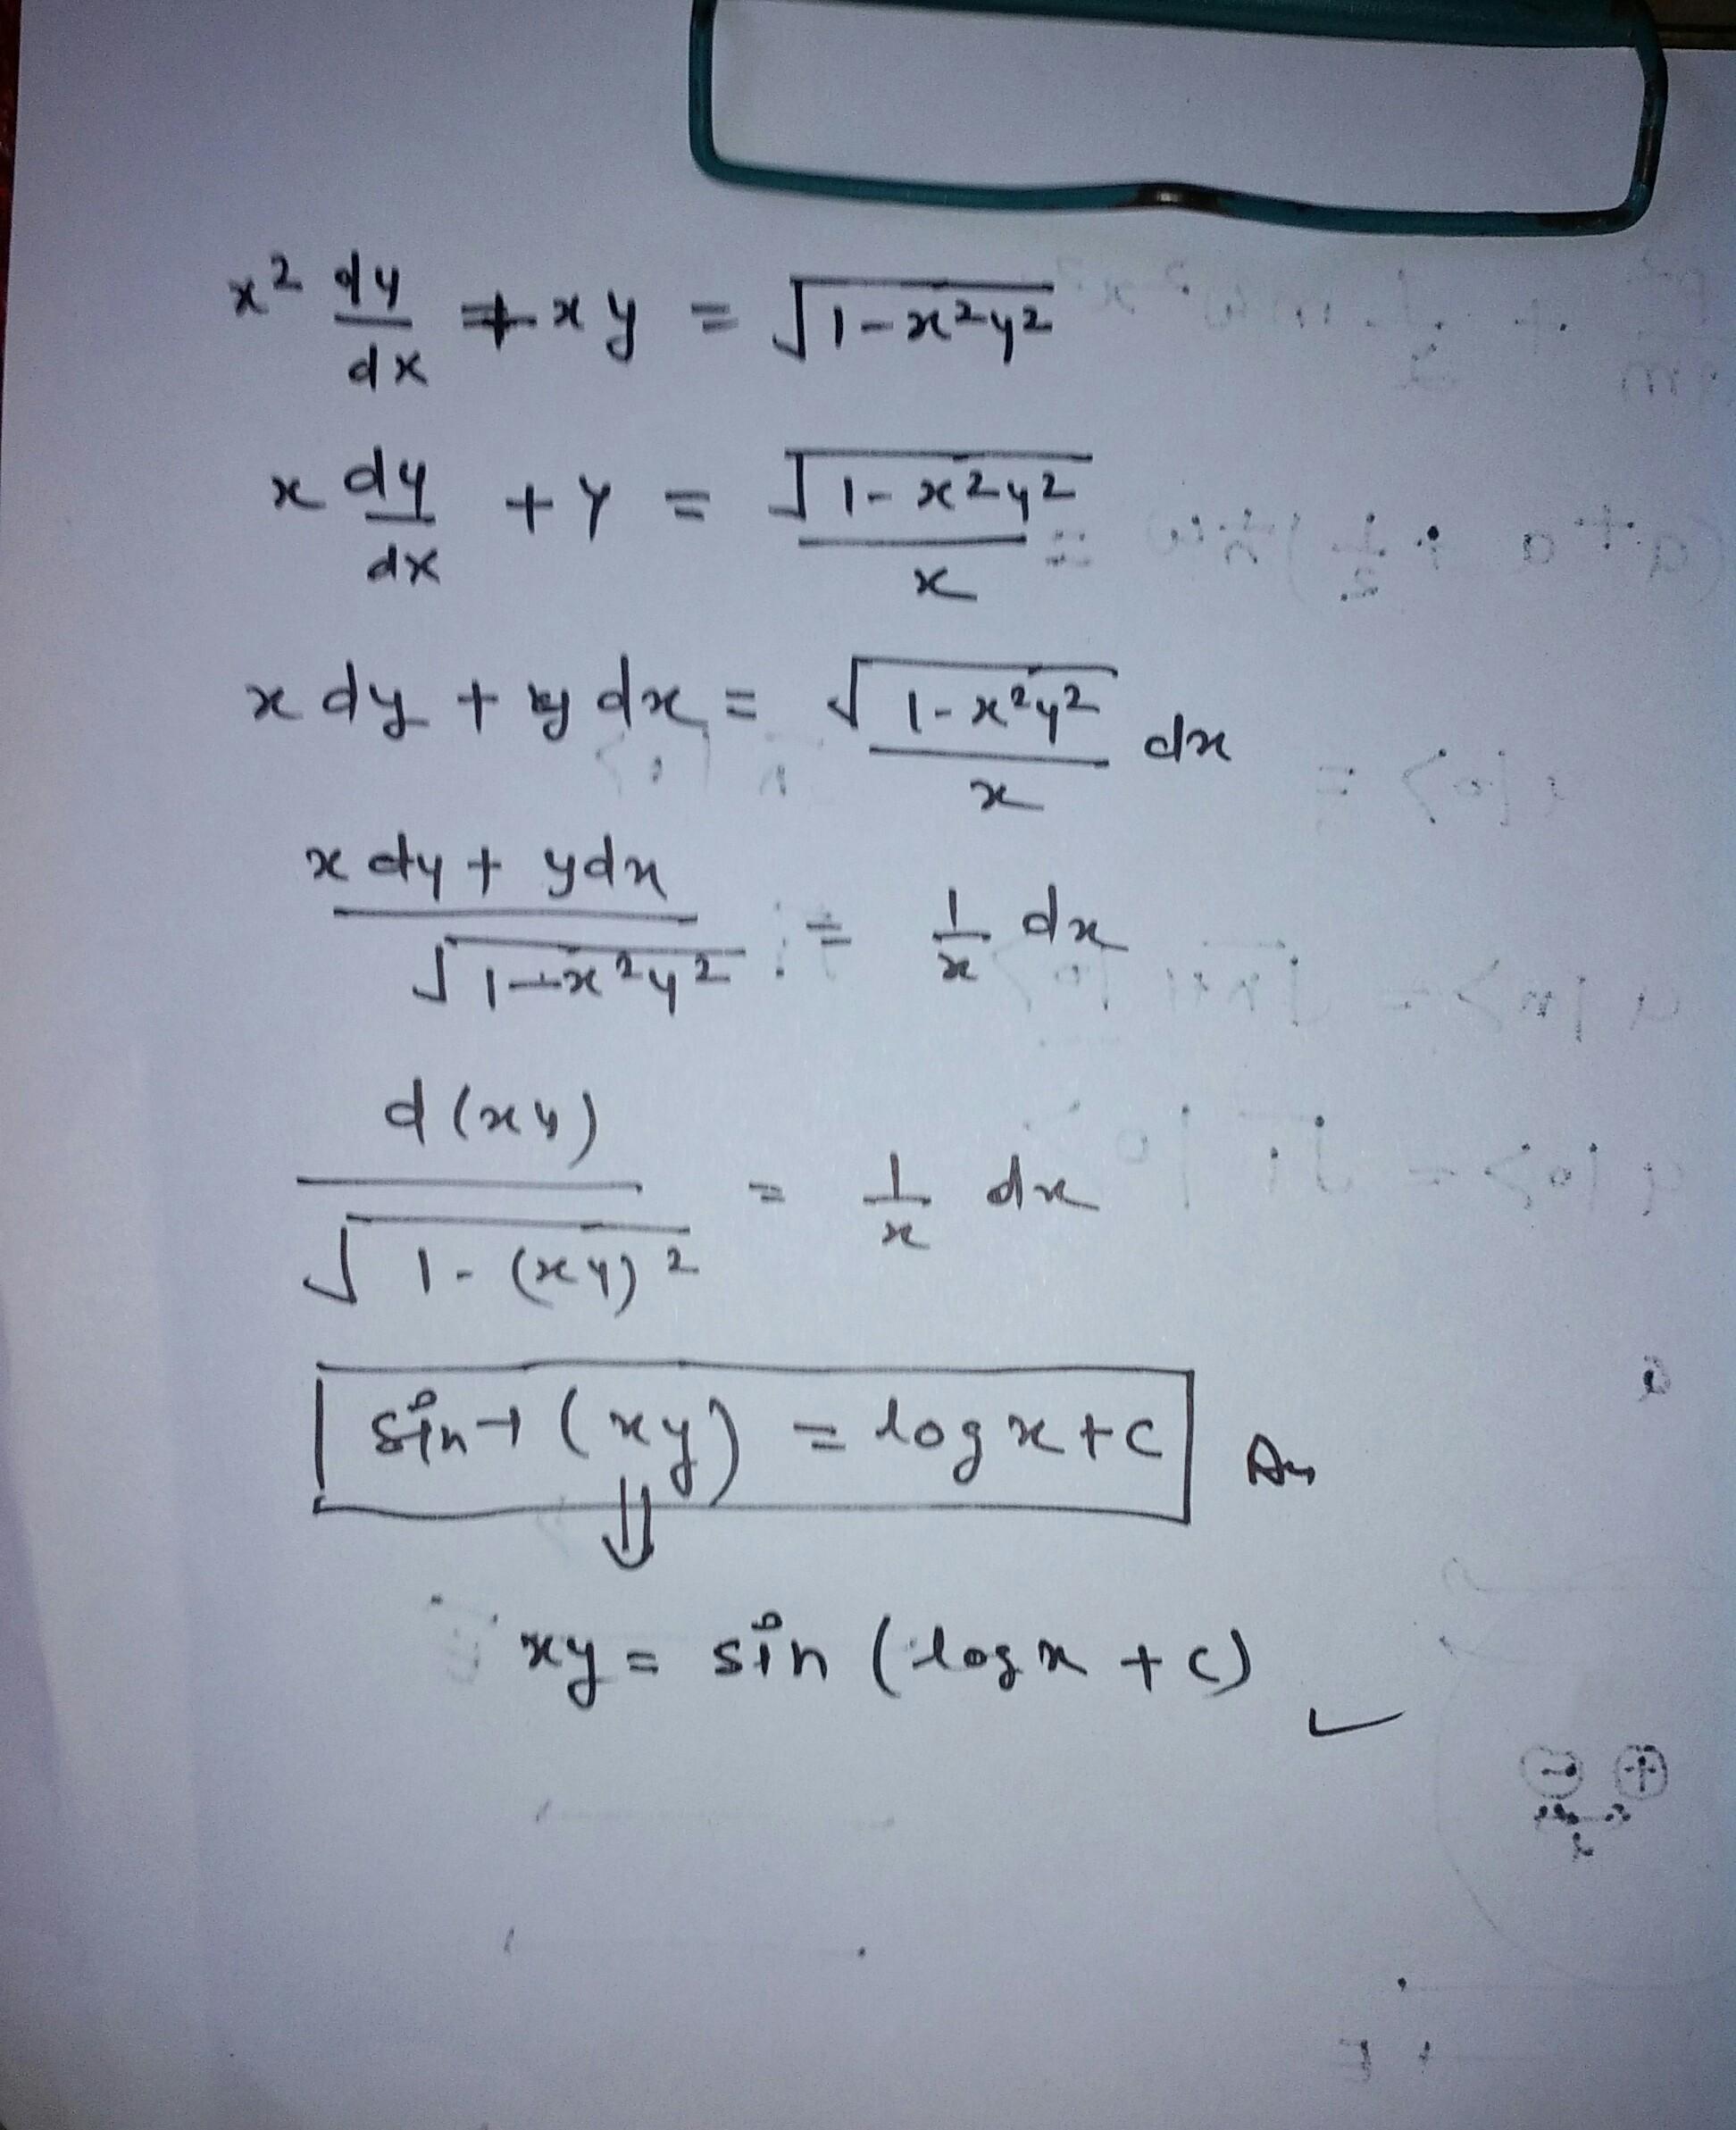 x² dy/dx + xy = √1-x²y²
x dy/dx + y = √1-x²y² / x
x dy + y dx = √1-x²y² / x dx
x dy + y dx / √1-x²y² = 1/x dx
d(xy) / √1-(xy)² = 1/x dx
sin⁻¹(xy) = log x + c Ans
⇓
xy = sin (log x + c) ✓